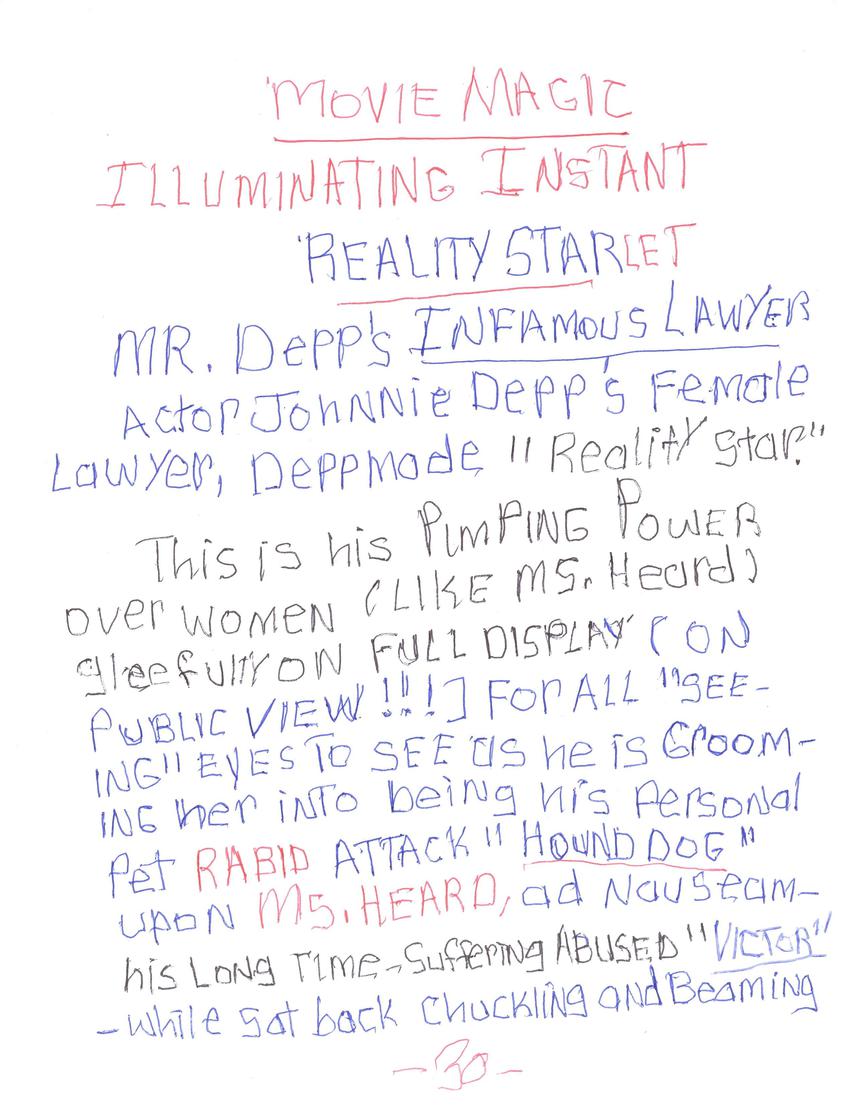 'MOVIE MAGIC
ILLUMINATING INSTANT
'REALITY STARLET
MR. Depp's INFAMOUS LAWYER
Actor Johnnie Depp's Female
Lawyer, Depp made "Reality Star."
This is his PimPING POWER
over WOMEN (LIKE MS. Heard)
gleefully ON FULL DISPLAY' (ON
PUBLIC VIEW!!!] FOR ALL "SEE-
ING" EYES TO SEE as he is Groom-
ING her into being his Personal
Pet RABID ATTACK "HOUND DOG"
upon MS. HEARD, ad Nauseam-
his LONG TIME-Suffering ABUSED "VICTOR"
-while sat back chuckling and Beaming
-30-